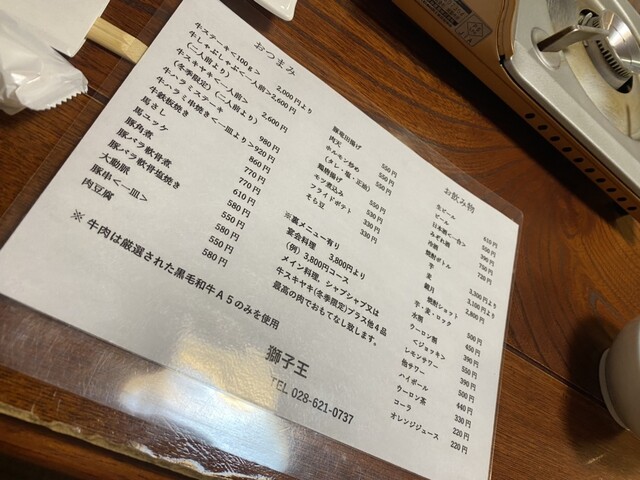 おつまみ
牛ステーキ<100g> 2,000円より
牛しゃぶしゃぶ<一人前> 2,600円
(二人前より)
牛スキヤキ<一人前> 2,600円
(冬季限定)(二人前より)
牛ハラミステーキ 980円
牛ハラミ串焼き<一皿より> 920円
牛鉄板焼き 860円
馬さし 770円
馬ユッケ 770円
豚角煮 610円
豚バラ軟骨煮 580円
豚バラ軟骨塩焼き 550円
大動脈 580円
豚串<一皿> 550円
肉豆腐 580円
※ 牛肉は厳選された黒毛和牛A5のみを使用
豚竜田揚げ 550円
肉天 550円
ホルモン炒め 550円
(タレ・塩・正油)
鶏唐揚げ 550円
モツ煮込み 530円
フライドポテト 330円
そら豆 330円
※裏メニュー有り
宴会料理 3,800円より
(例) 3,800円コース
メイン料理、シャブシャブ又は
牛スキヤキ(冬季限定)プラス他4品
最高の肉でおもてなし致します。
お飲み物
生ビール 610円
ビール
日本酒<一合>
冷酒
焼酎ボトル
芋
麦
焼酎ショット
芋・麦・ロック
水割
ウーロン割
<ジョッキ>
レモンサワー
他サワー
ハイボール
ウーロン茶
コーラ 220円
オレンジジュース 220円
獅子王
TEL 028-621-0737